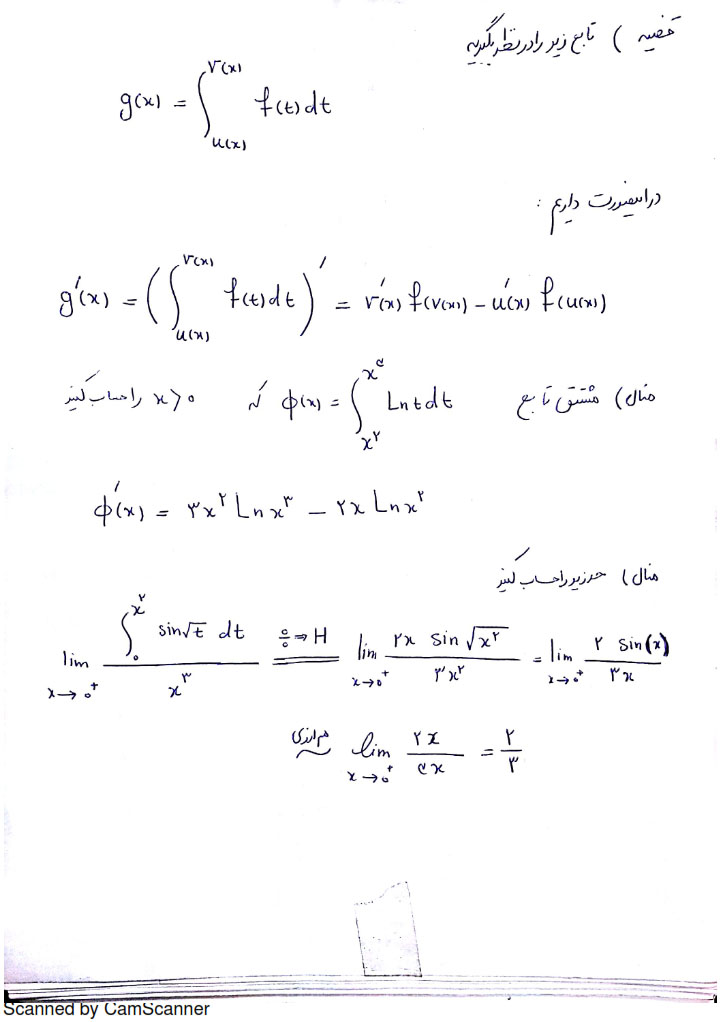 قضیه ) تابع زیر را در نظر بگیرید
g(x) = ∫_{u(x)}^{v(x)} f(t) dt
در اینصورت داریم :
g′(x) = ( ∫_{u(x)}^{v(x)} f(t) dt )′ = v′(x) f(v(x)) − u′(x) f(u(x))
مثال ) مشتق تابع φ(x) = ∫_{x^۲}^{x^۳} Ln t dt که x > ۰ را حساب کنید
φ′(x) = ۳x^۲ Ln x^۳ − ۲x Ln x^۲
مثال ) حد زیر را حساب کنید
lim_{x→۰^+} (∫_۰^{x^۲} sin√t dt) / x^۳ =(۰/۰ ⇒ H)= lim_{x→۰^+} (۲x sin√(x^۲)) / (۳x^۲) = lim_{x→۰^+} (۲ sin(x)) / (۳x)
هم ارزی ~ lim_{x→۰^+} (۲x) / (۳x) = ۲/۳
Scanned by CamScanner